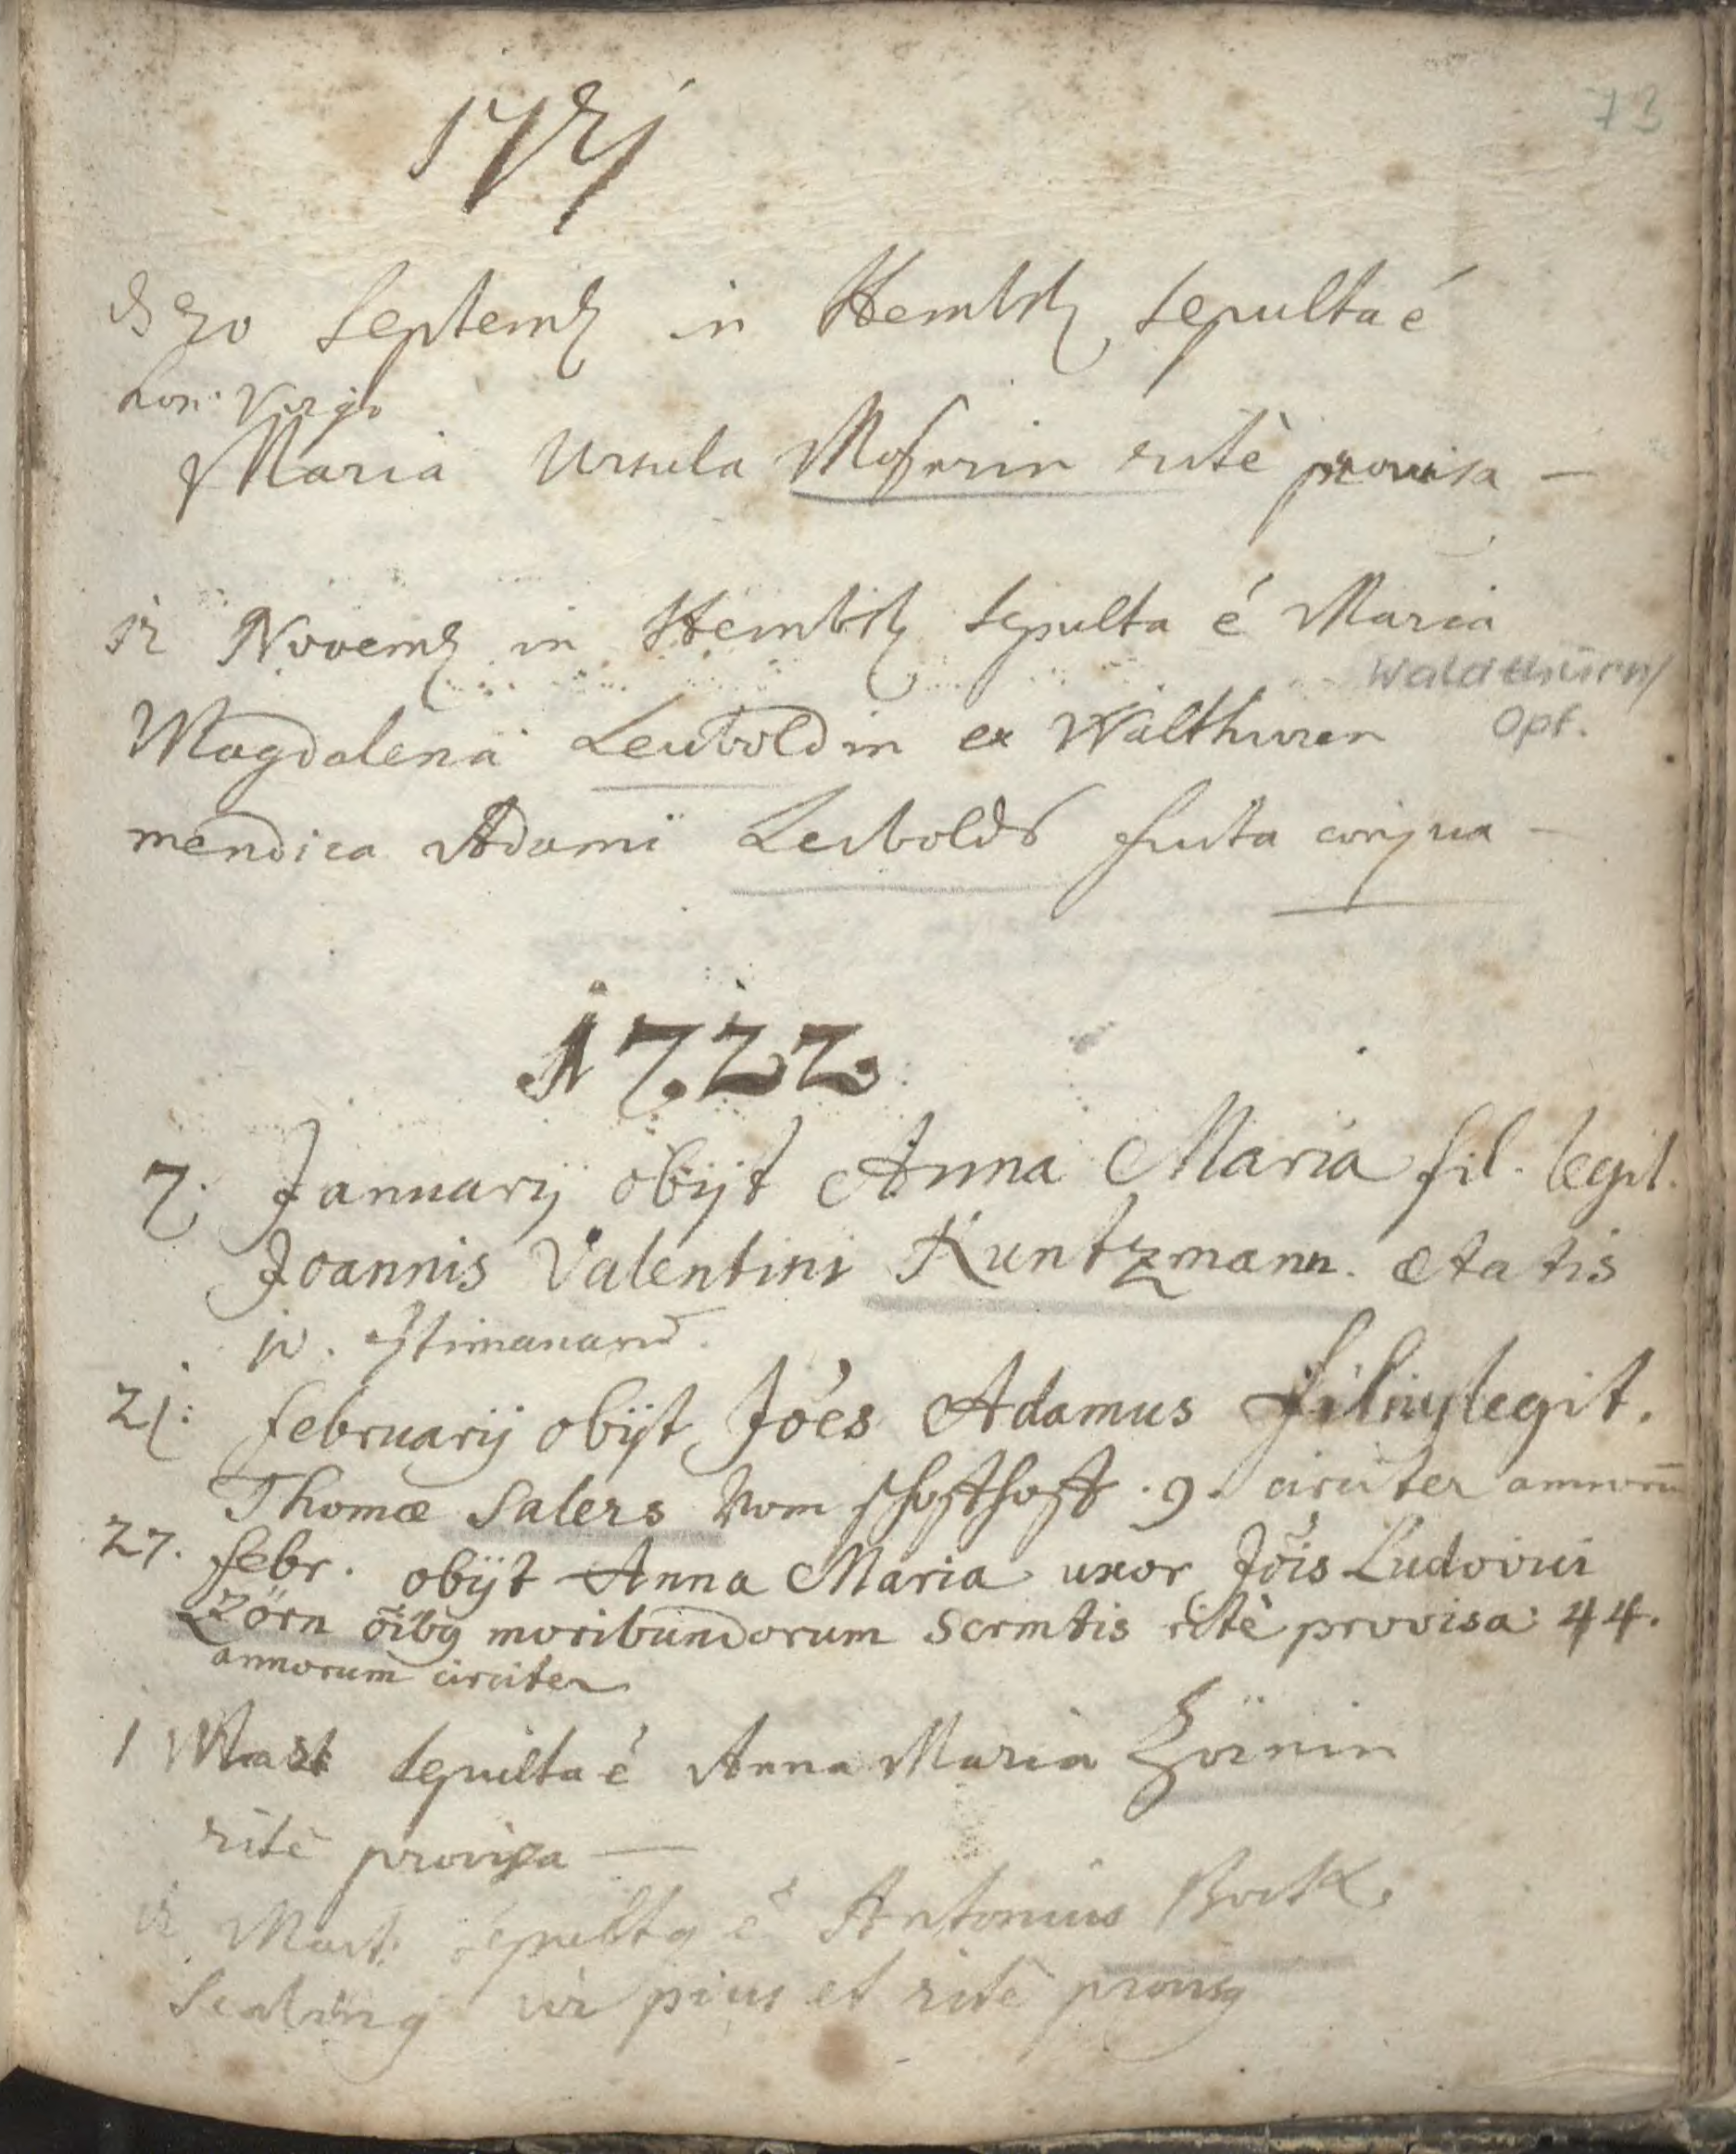 73
1721
20 Septemb in Hembsb sepulta é
hon: Virgo
Maria Ursula Moserin ritè provisa —
12 Novemb in Hembsb sepulta é Maria
Waldthürn/
Magdalena Leuboldin ex Walthuren
Opf.
mendica Adami Leibolds conjux —
1722
7. Januarij obijt Anna Maria fil. legit.
Joannis Valentini Kuntzmann. ætatis
21: februarij obijt Jóes Adamus filius legit.
Thomæ Salers Vom 9. circiter annorū
27. febr. obijt Anna Maria uxor Jõis Ludovici
Zörn õibg moribundorum Scrmtis ritè provisa 44.
annorum circiter
1 Mart sepulta é Anna Maria Zörnin
ritè provisa —
12 Mart: sepultg é Antonius Bock
vir pius et ritè provisg